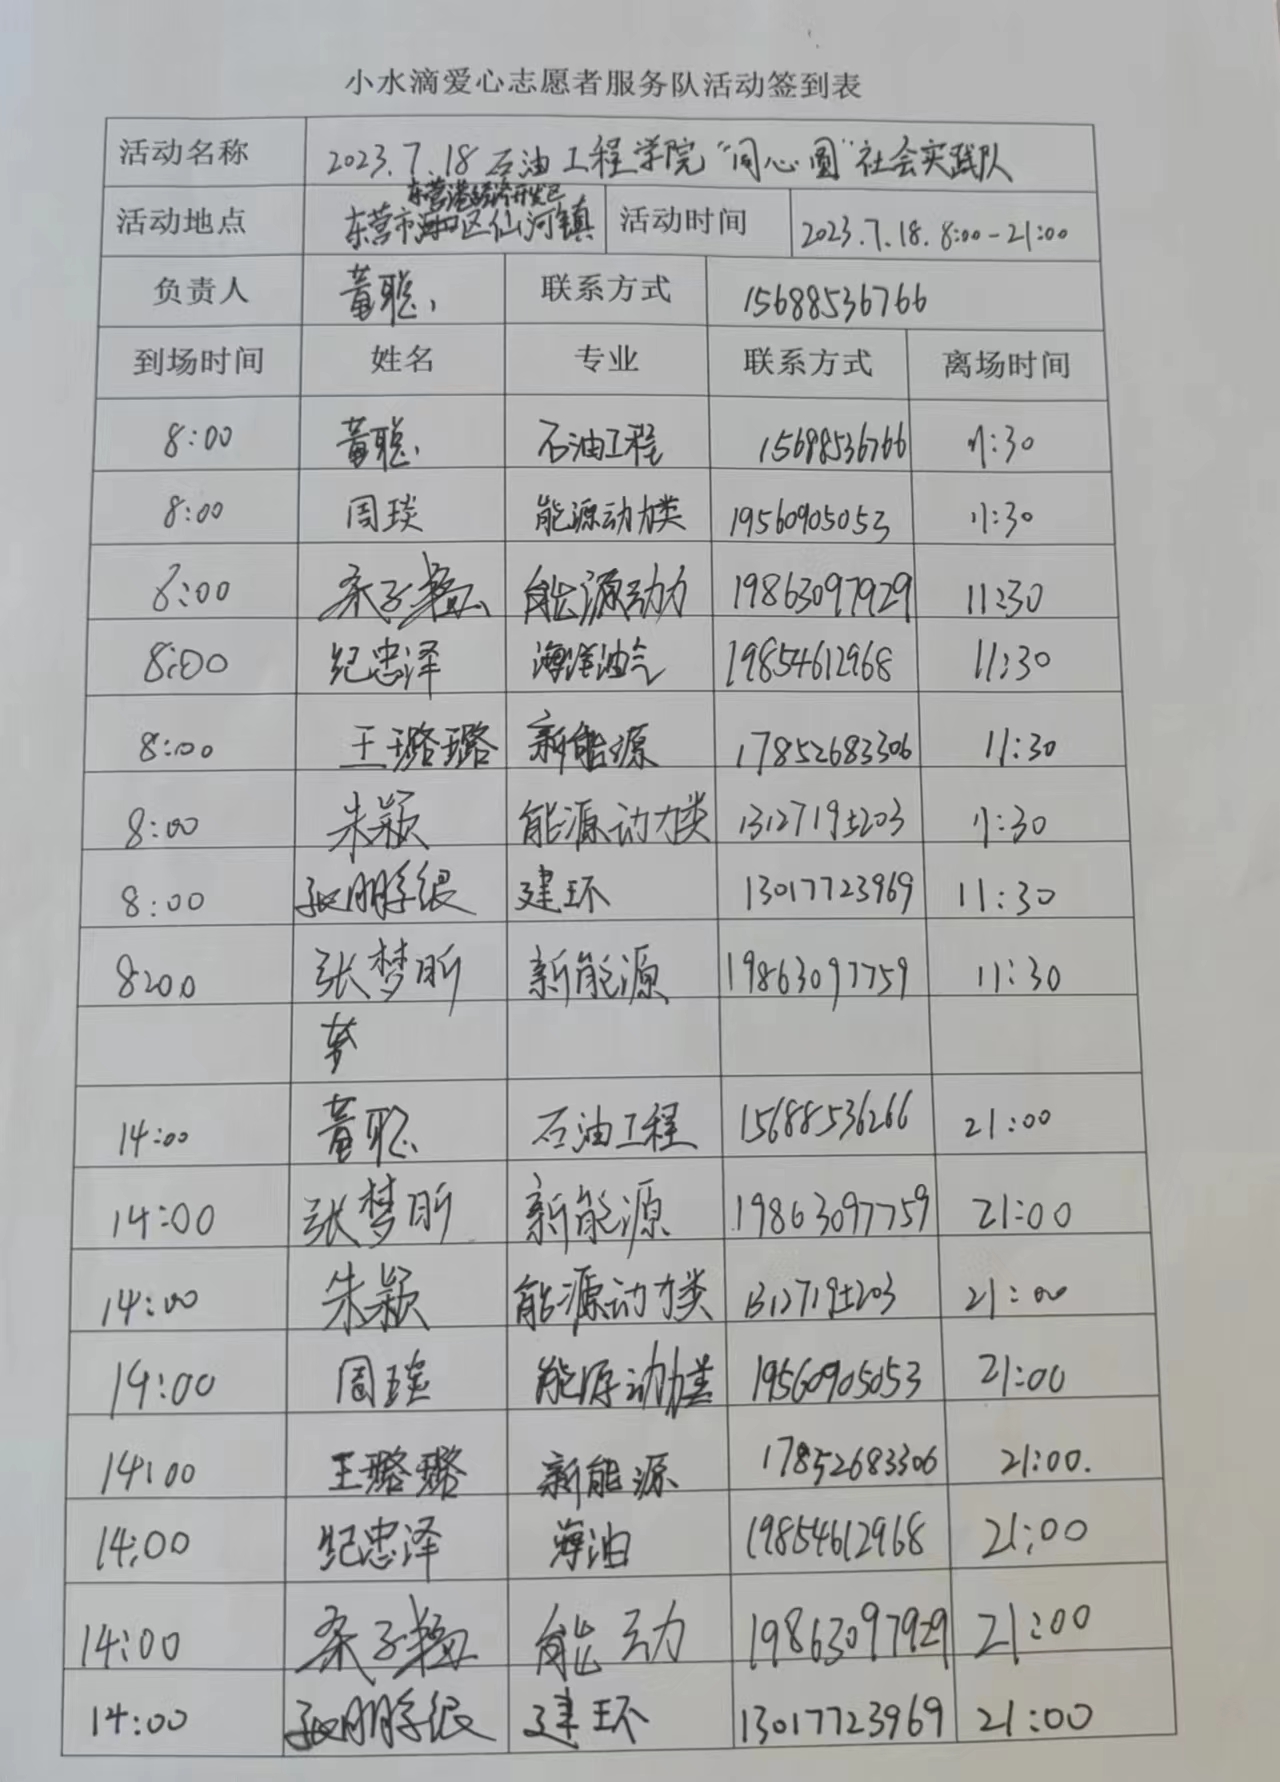 小水滴爱心志愿者服务队活动签到表
活动名称 2023.7.18 石油工程学院“同心圆”社会实践队
东营港经济开发区
活动地点 东营市区仙河镇 活动时间 2023.7.18. 8:00-21:00
负责人 黄聪 联系方式 15688536766
到场时间 姓名 专业 联系方式 离场时间
8:00 黄聪 石油工程 15688536766 11:30
8:00 周琰 能源动力类 19560905053 11:30
8:00 能源动力 19863097929 11:30
8:00 纪忠泽 海洋油气 19854612968 11:30
8:00 王璐璐 新能源 17852683306 11:30
8:00 朱颖 能源动力类 11:30
8:00 建环 13017723969 11:30
8:00 张梦昕 新能源 19863097759 11:30
14:00 黄聪 石油工程 15688536266 21:00
14:00 张梦昕 新能源 19863097759 21:00
14:00 朱颖 能源动力类 21:00
14:00 周琰 能源动力类 19560905053 21:00
14:00 王璐璐 新能源 17852683306 21:00.
14:00 纪忠泽 海油 19854612968 21:00
14:00 能动 19863097929 21:00
14:00 建环 13017723969 21:00